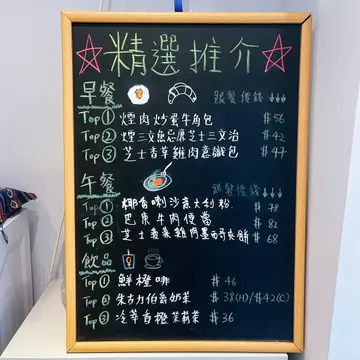 精選推介
早餐 跟餐價錢↓↓↓
Top① 煙肉炒蛋牛角包 $56
Top② 煙三文魚忌廉芝士三文治 $42
Top③ 芝士香草雞肉意式包 $47
午餐 跟餐價錢↓↓↓
Top① 椰香喇沙意大利粉 $78
Top② 巴東牛肉便當 $82
Top③ 芝士素菜雞肉墨西哥夾餅 $68
飲品
Top① 鮮橙啡 $46
Top② 朱古力伯爵奶茶 $38(H)/$42(C)
Top③ 冷萃香橙茉莉茶 $36